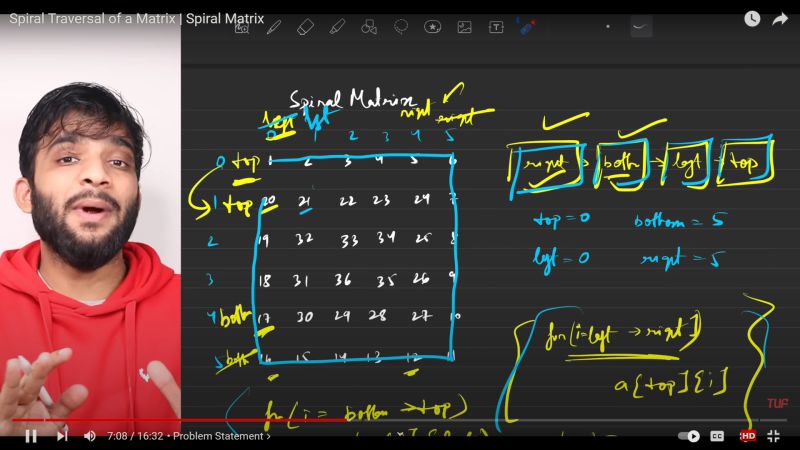 Spiral Traversal of a Matrix | Spiral Matrix
Spiral Matrix
left left right right
0 1 2 3 4 5
0 top 1 2 3 4 5 6
1 top 20 21 22 23 24 7
2 19 32 33 34 25 8
3 18 31 36 35 26 9
4 bottom 17 30 29 28 27 10
5 bottom 16 15 14 13 12 11
right → bottom → left → top
top = 0 bottom = 5
left = 0 right = 5
for(i=left → right)
a[top][i]
for(i = bottom → top)
TUF
7:08 / 16:32 • Problem Statement >
CC
HD